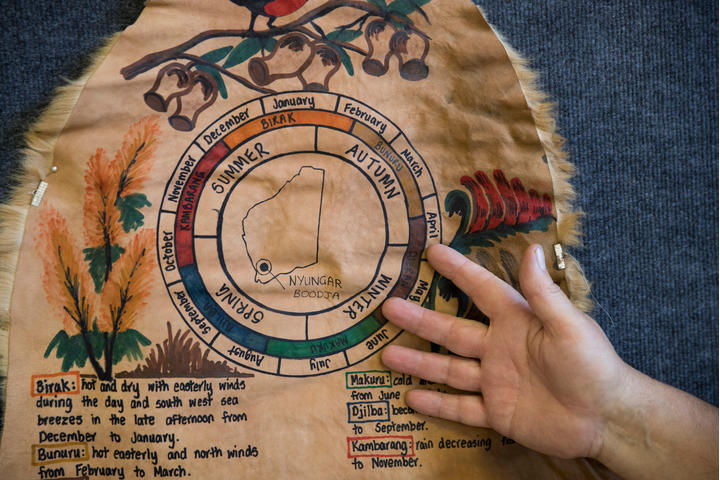 January
February
March
April
May
June
July
August
September
October
November
December
BIRAK
BUNURU
MAKURU
KAMBARANG
SUMMER
AUTUMN
WINTER
SPRING
NYUNGAR
BOODJA
Birak: hot and dry with easterly winds
during the day and south west sea
breezes in the late afternoon from
December to January.
Bunuru: hot easterly and north winds
from February to March.
Makuru: cold
from June
Djilba:
to September.
Kambarang: rain decreasing
to November.